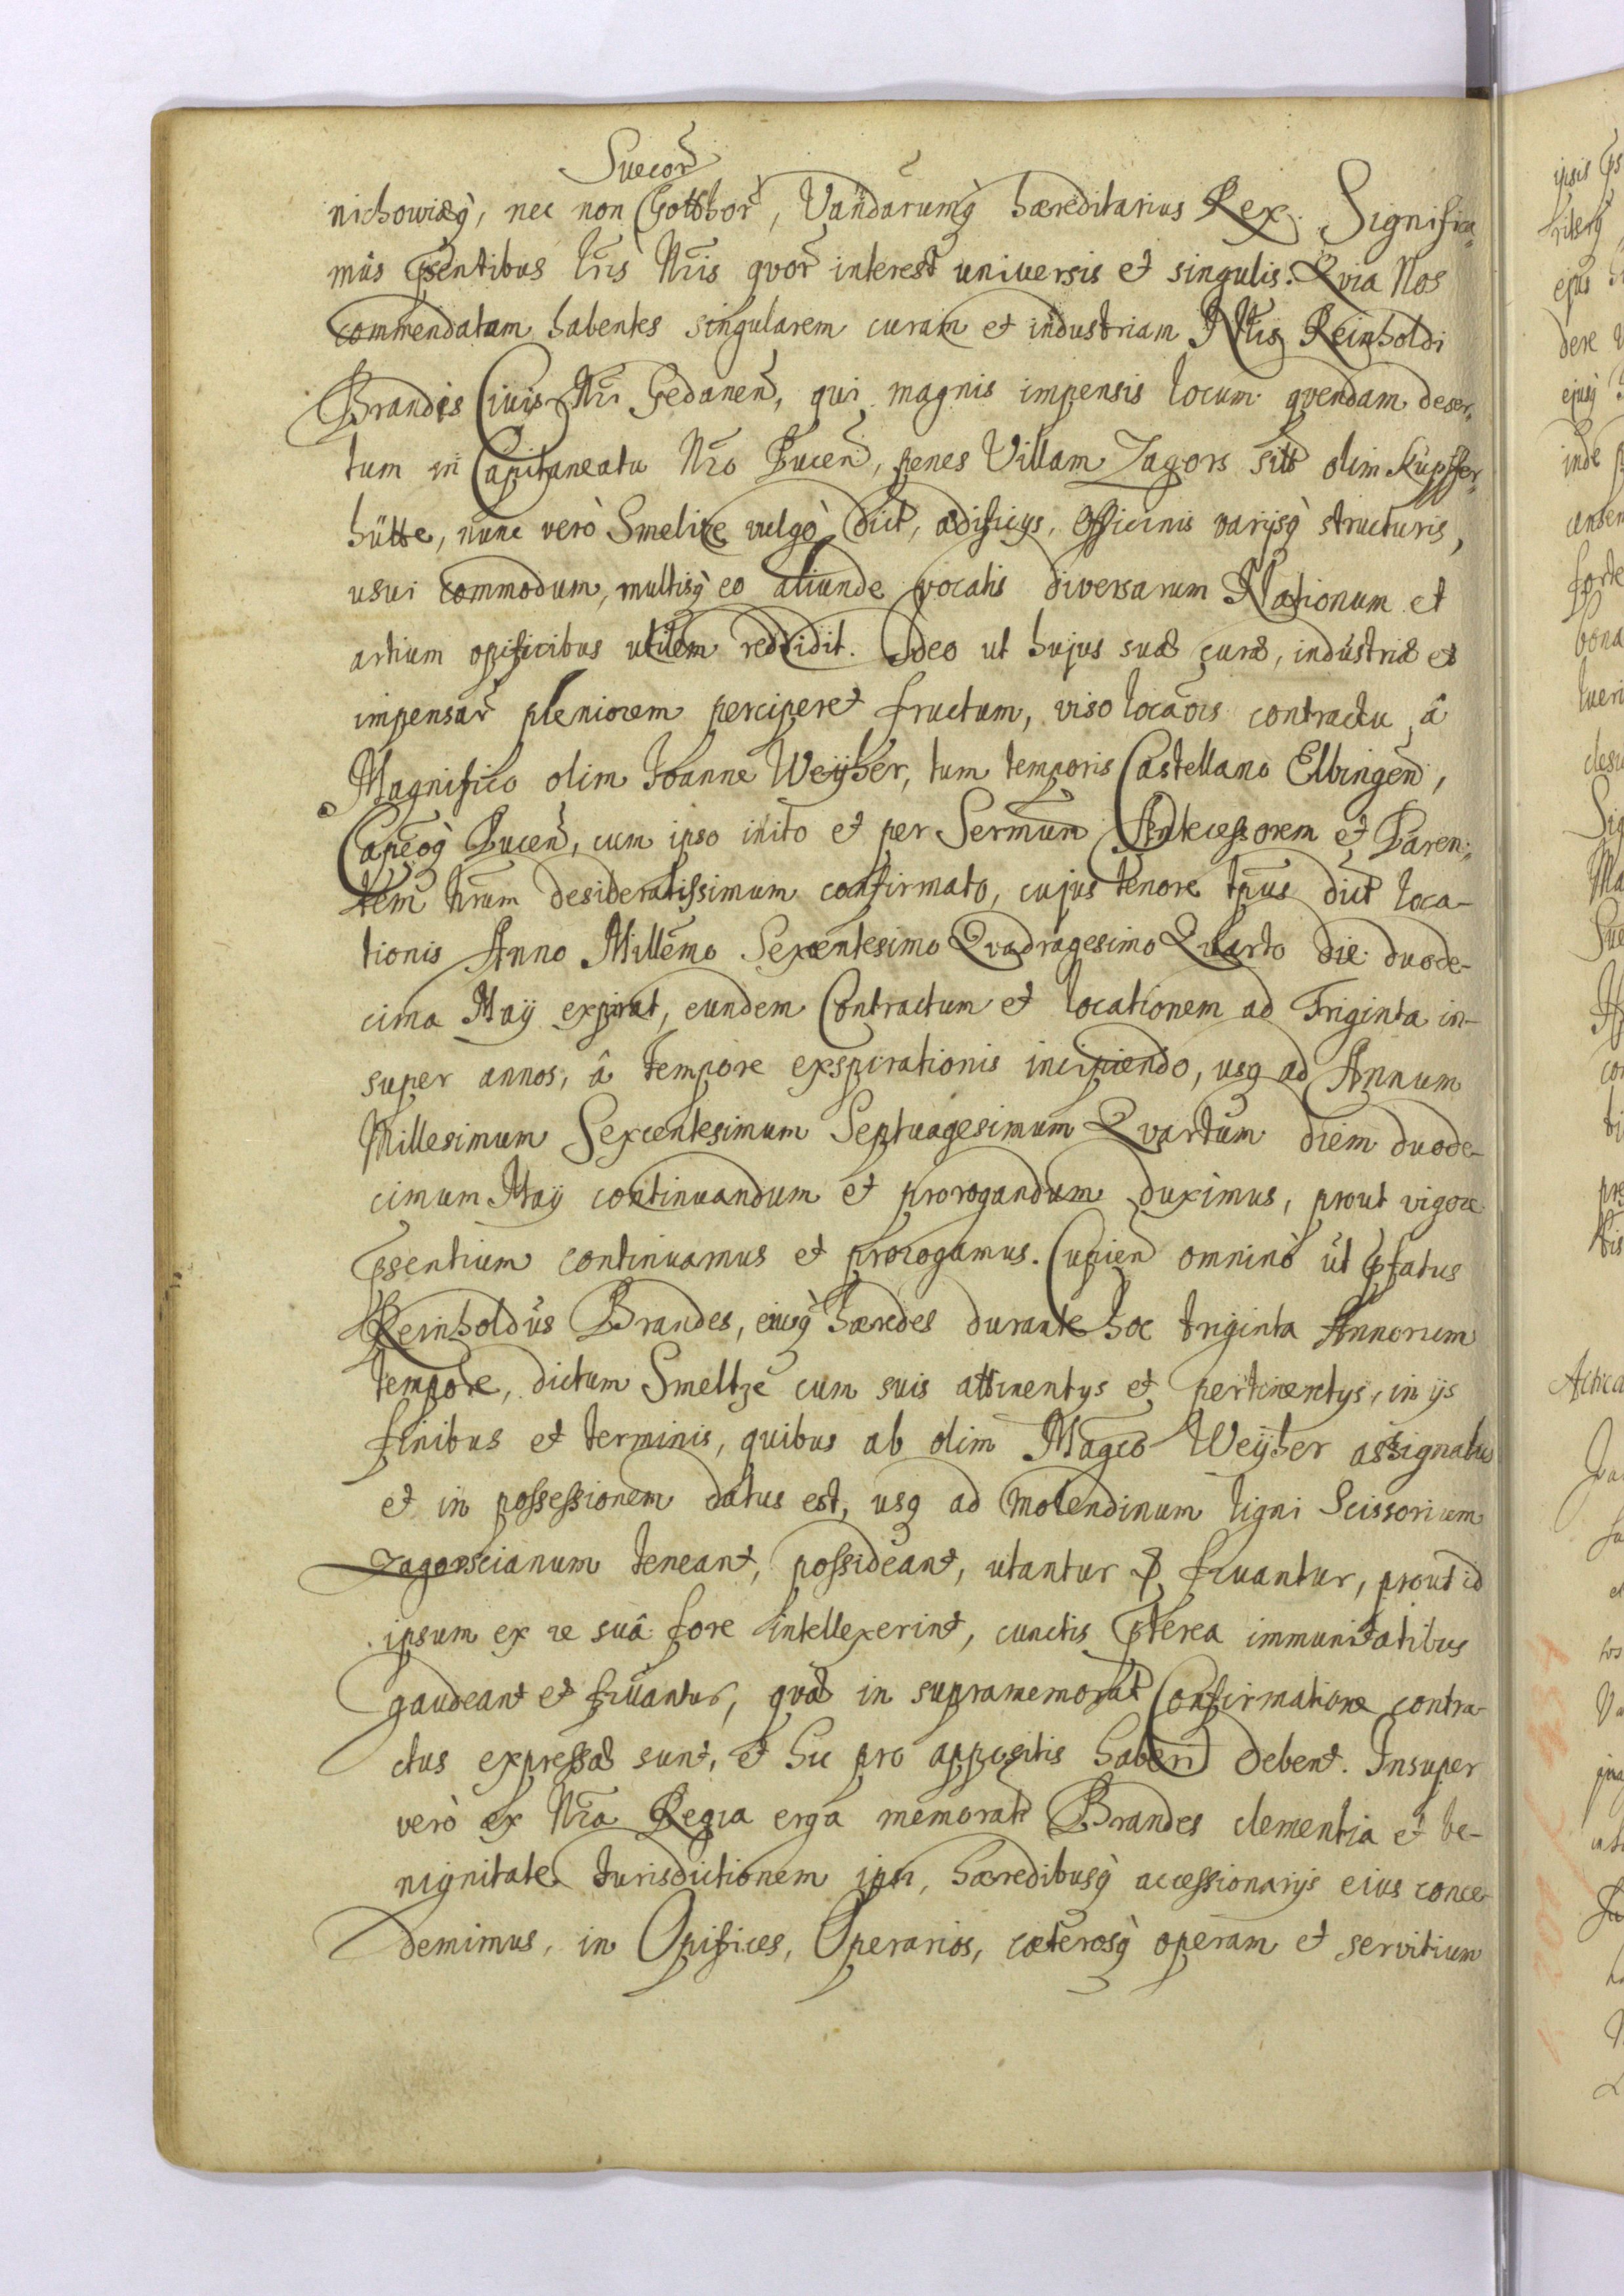 Suecor̃
nichowiæq̀, nec non Gotthor̃, Vandarumq̀ hæreditarius Rex. Significa„
mus p̃sentibus lr̃is Nr̃is qvor̃ interest universis et singulis. Qvia Nos
commendatam habentes singularem curam et industriam Nblis Reinholdi
Brandes Civis Nr̃i Gedanen̄, qui magnis impensis locum qvendam deser„
tum in Capitaneatu Nr̃o Pucen̄, penes Villam Zagors sitt olim Kupffer„
hütte, nunc verò Smeltze vulgò dict, ædificÿs, Officinis varijsq̀ structuris,
usui commodum, multisq̀ eo aliunde vocatis diversarum Nationum et
artium opificibus utilem reddidit. Ideo ut hujus suæ curæ, industriæ et
impensar̃ pleniorem perciperet fructum, viso locao͠is contractu â
Magnifico olim Joanne Weÿher, tum temporis Castellano Elbingen̄,
Capn̄eoq̀ Pucen̄, cum ipso inito et per Serm̄um Antecessorem et Paren„
tem Nr̃um desideratissimum confirmato, cujus tenore tp̄us dict loca-
tionis Anno Millēmo Sexcentesimo Qvadragesimo Qvarto die duode-
cima Maÿ expirat, eundem Contractum et locationem ad Triginta in-
super annos, â tempore exspirationis incipiendo, usq ad Annum
Millesimum Sexcentesimum Septuagesimum Qvartum diem duode-
cimum Maÿ continuandum et prorogandum duximus, prout vigore
p̃sentium continuamus et prorogamus. Cupien̄ omninò ut p̃fatus
Reinholdus Brandes, eiusq̀ hæredes durante hoc triginta Annorum
tempore, dictum Smeltze cum suis attinentÿs et pertinentÿs, in ÿs
finibus et terminis, quibus ab olim Mag̃co Weÿher assignatus
et in possessionem datus est, usq ad Molendinum ligni Scissorium
Zagorscianum teneant, possideant, utantur & fruantur, prout id
ipsum ex re suâ fore intellexerint, cunctis p̃terea immunitatibus
gaudeant et fruantur, qvæ in supramemorat Confirmatione contra-
ctus expressæ sunt, et hic pro appositis haberi debent. Insuper
verò ex Nr̃a Regia erga memorat Brandes clementia et be-
nignitate Jurisdictionem ipsi, hæredibusq̀ accessionarijs eius conce-
demimus, in Opifices, Operarios, cæterosq̀ operam et servitium